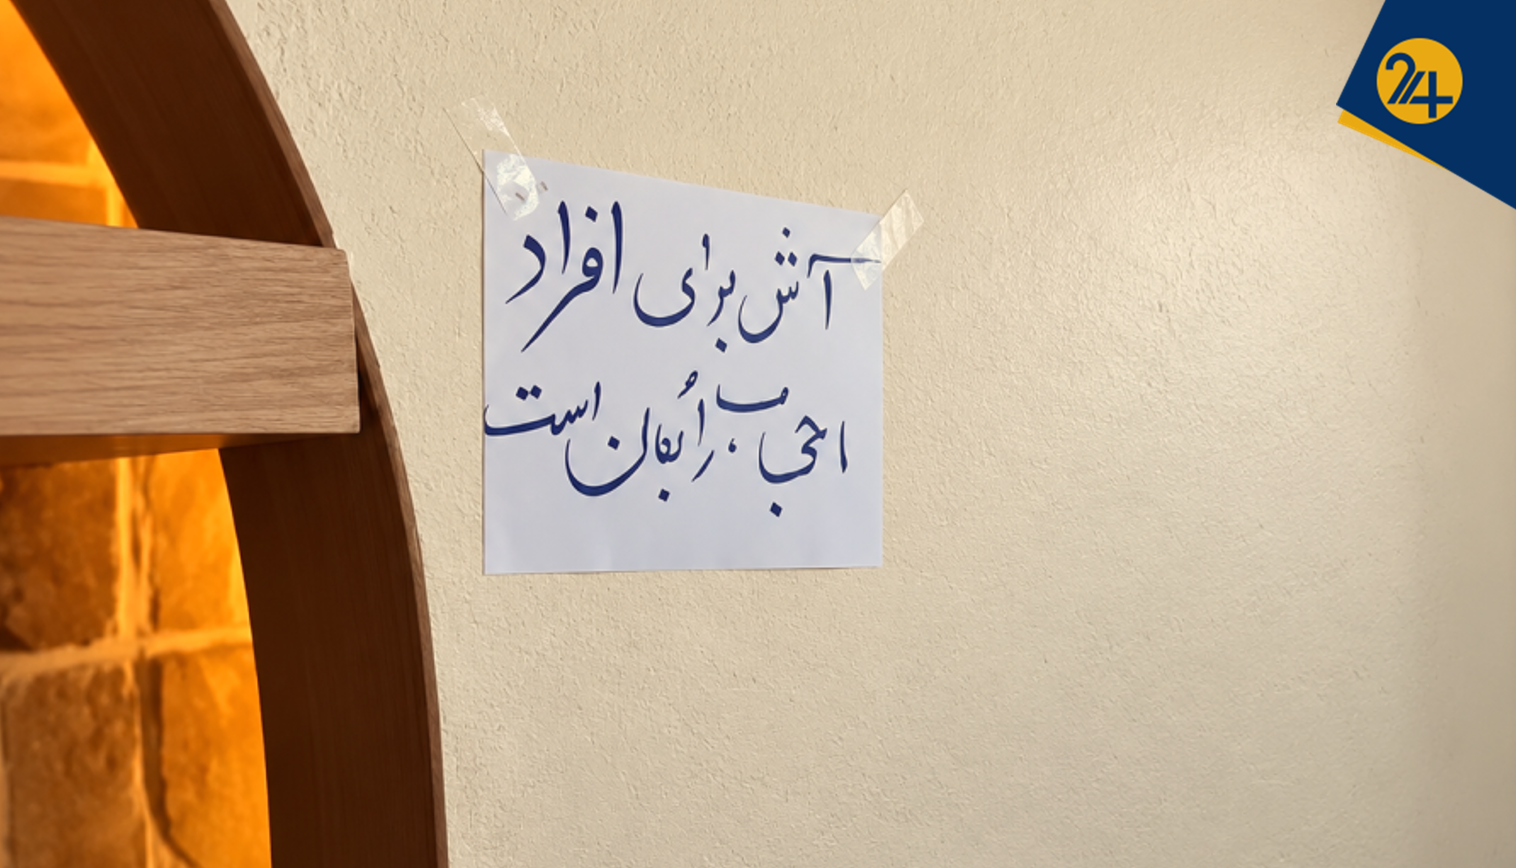 آش برای افراد
رایگان است
24